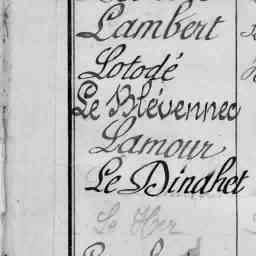 Lambert
Lotodé
Le Blévennec
Lamour
Le Dinahet
Le Her